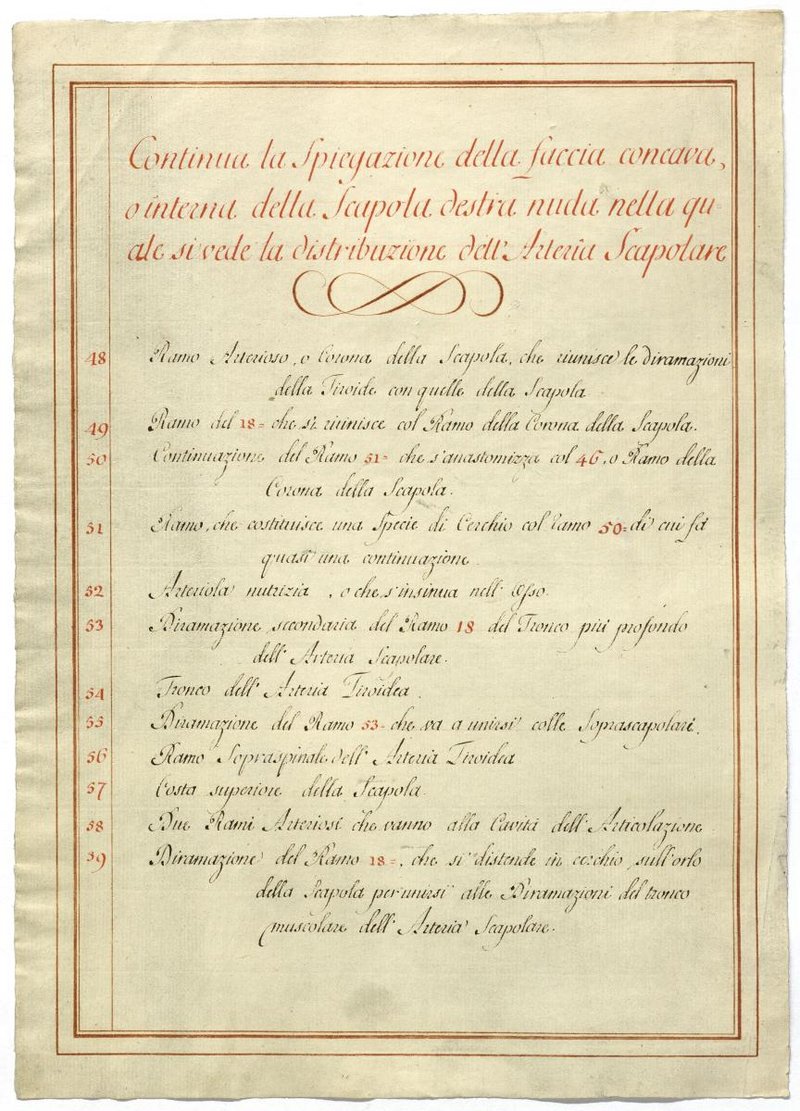 Continua la Spiegazione della faccia concava,
o interna della Scapola destra nuda nella qu-
ale si vede la distribuzione dell'Arteria Scapolare
48 Ramo Arterioso, o Corona della Scapola, che riunisce le diramazioni
della Tiroide con quelle della Scapola
49 Ramo del 18= che si riinisce col Ramo della Corona della Scapola.
50 Continuazione del Ramo 51= che s'anastomizza col 46, o Ramo della
Corona della Scapola.
51 Ramo, che costituisce una Specie di Cerchio col Ramo 50= di cui fa
quasi una continuazione.
52 Arteriola nutrizia, o che s'insinua nell'Osso.
53 Diramazione secondaria del Ramo 18 del Tronco più profondo
dell'Arteria Scapolare.
54 Tronco dell'Arteria Tiroidea.
55 Diramazione del Ramo 53= che va a unirsi colle Soprascapolari.
56 Ramo Sopraspinale dell'Arteria Tiroidea
57 Costa superiore della Scapola
58 Due Rami Arteriosi che vanno alla Cavità dell'Articolazione
59 Diramazione del Ramo 18=, che si distende in cerchio sull'orlo
della Scapola per unirsi alle Diramazioni del tronco
muscolare dell'Arteria Scapolare.